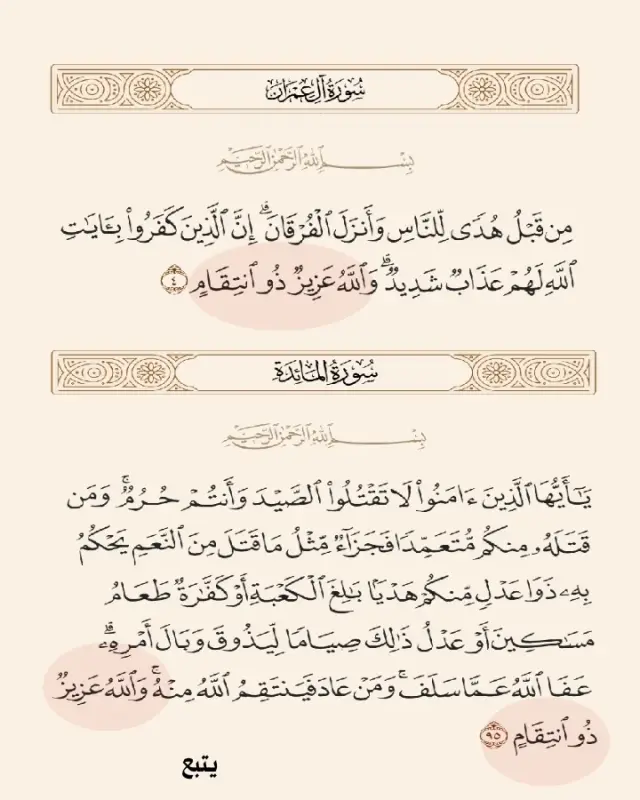 سُورَةُ آلِ عِمْرَان
بِسْمِ ٱللَّهِ ٱلرَّحْمَٰنِ ٱلرَّحِيمِ
مِن قَبْلُ هُدًى لِّلنَّاسِ وَأَنزَلَ ٱلْفُرْقَانَ ۗ إِنَّ ٱلَّذِينَ كَفَرُوا۟ بِـَٔايَٰتِ
ٱللَّهِ لَهُمْ عَذَابٌ شَدِيدٌ ۗ وَٱللَّهُ عَزِيزٌ ذُو ٱنتِقَامٍ ٤
سُورَةُ المَائِدَة
بِسْمِ ٱللَّهِ ٱلرَّحْمَٰنِ ٱلرَّحِيمِ
يَٰٓأَيُّهَا ٱلَّذِينَ ءَامَنُوا۟ لَا تَقْتُلُوا۟ ٱلصَّيْدَ وَأَنتُمْ حُرُمٌ ۚ وَمَن
قَتَلَهُۥ مِنكُم مُّتَعَمِّدًا فَجَزَآءٌ مِّثْلُ مَا قَتَلَ مِنَ ٱلنَّعَمِ يَحْكُمُ
بِهِۦ ذَوَا عَدْلٍ مِّنكُمْ هَدْيًۢا بَٰلِغَ ٱلْكَعْبَةِ أَوْ كَفَّٰرَةٌ طَعَامُ
مَسَٰكِينَ أَوْ عَدْلُ ذَٰلِكَ صِيَامًا لِّيَذُوقَ وَبَالَ أَمْرِهِۦ ۗ
عَفَا ٱللَّهُ عَمَّا سَلَفَ ۚ وَمَنْ عَادَ فَيَنتَقِمُ ٱللَّهُ مِنْهُ ۗ وَٱللَّهُ عَزِيزٌ
ذُو ٱنتِقَامٍ ٩٥
يتبع